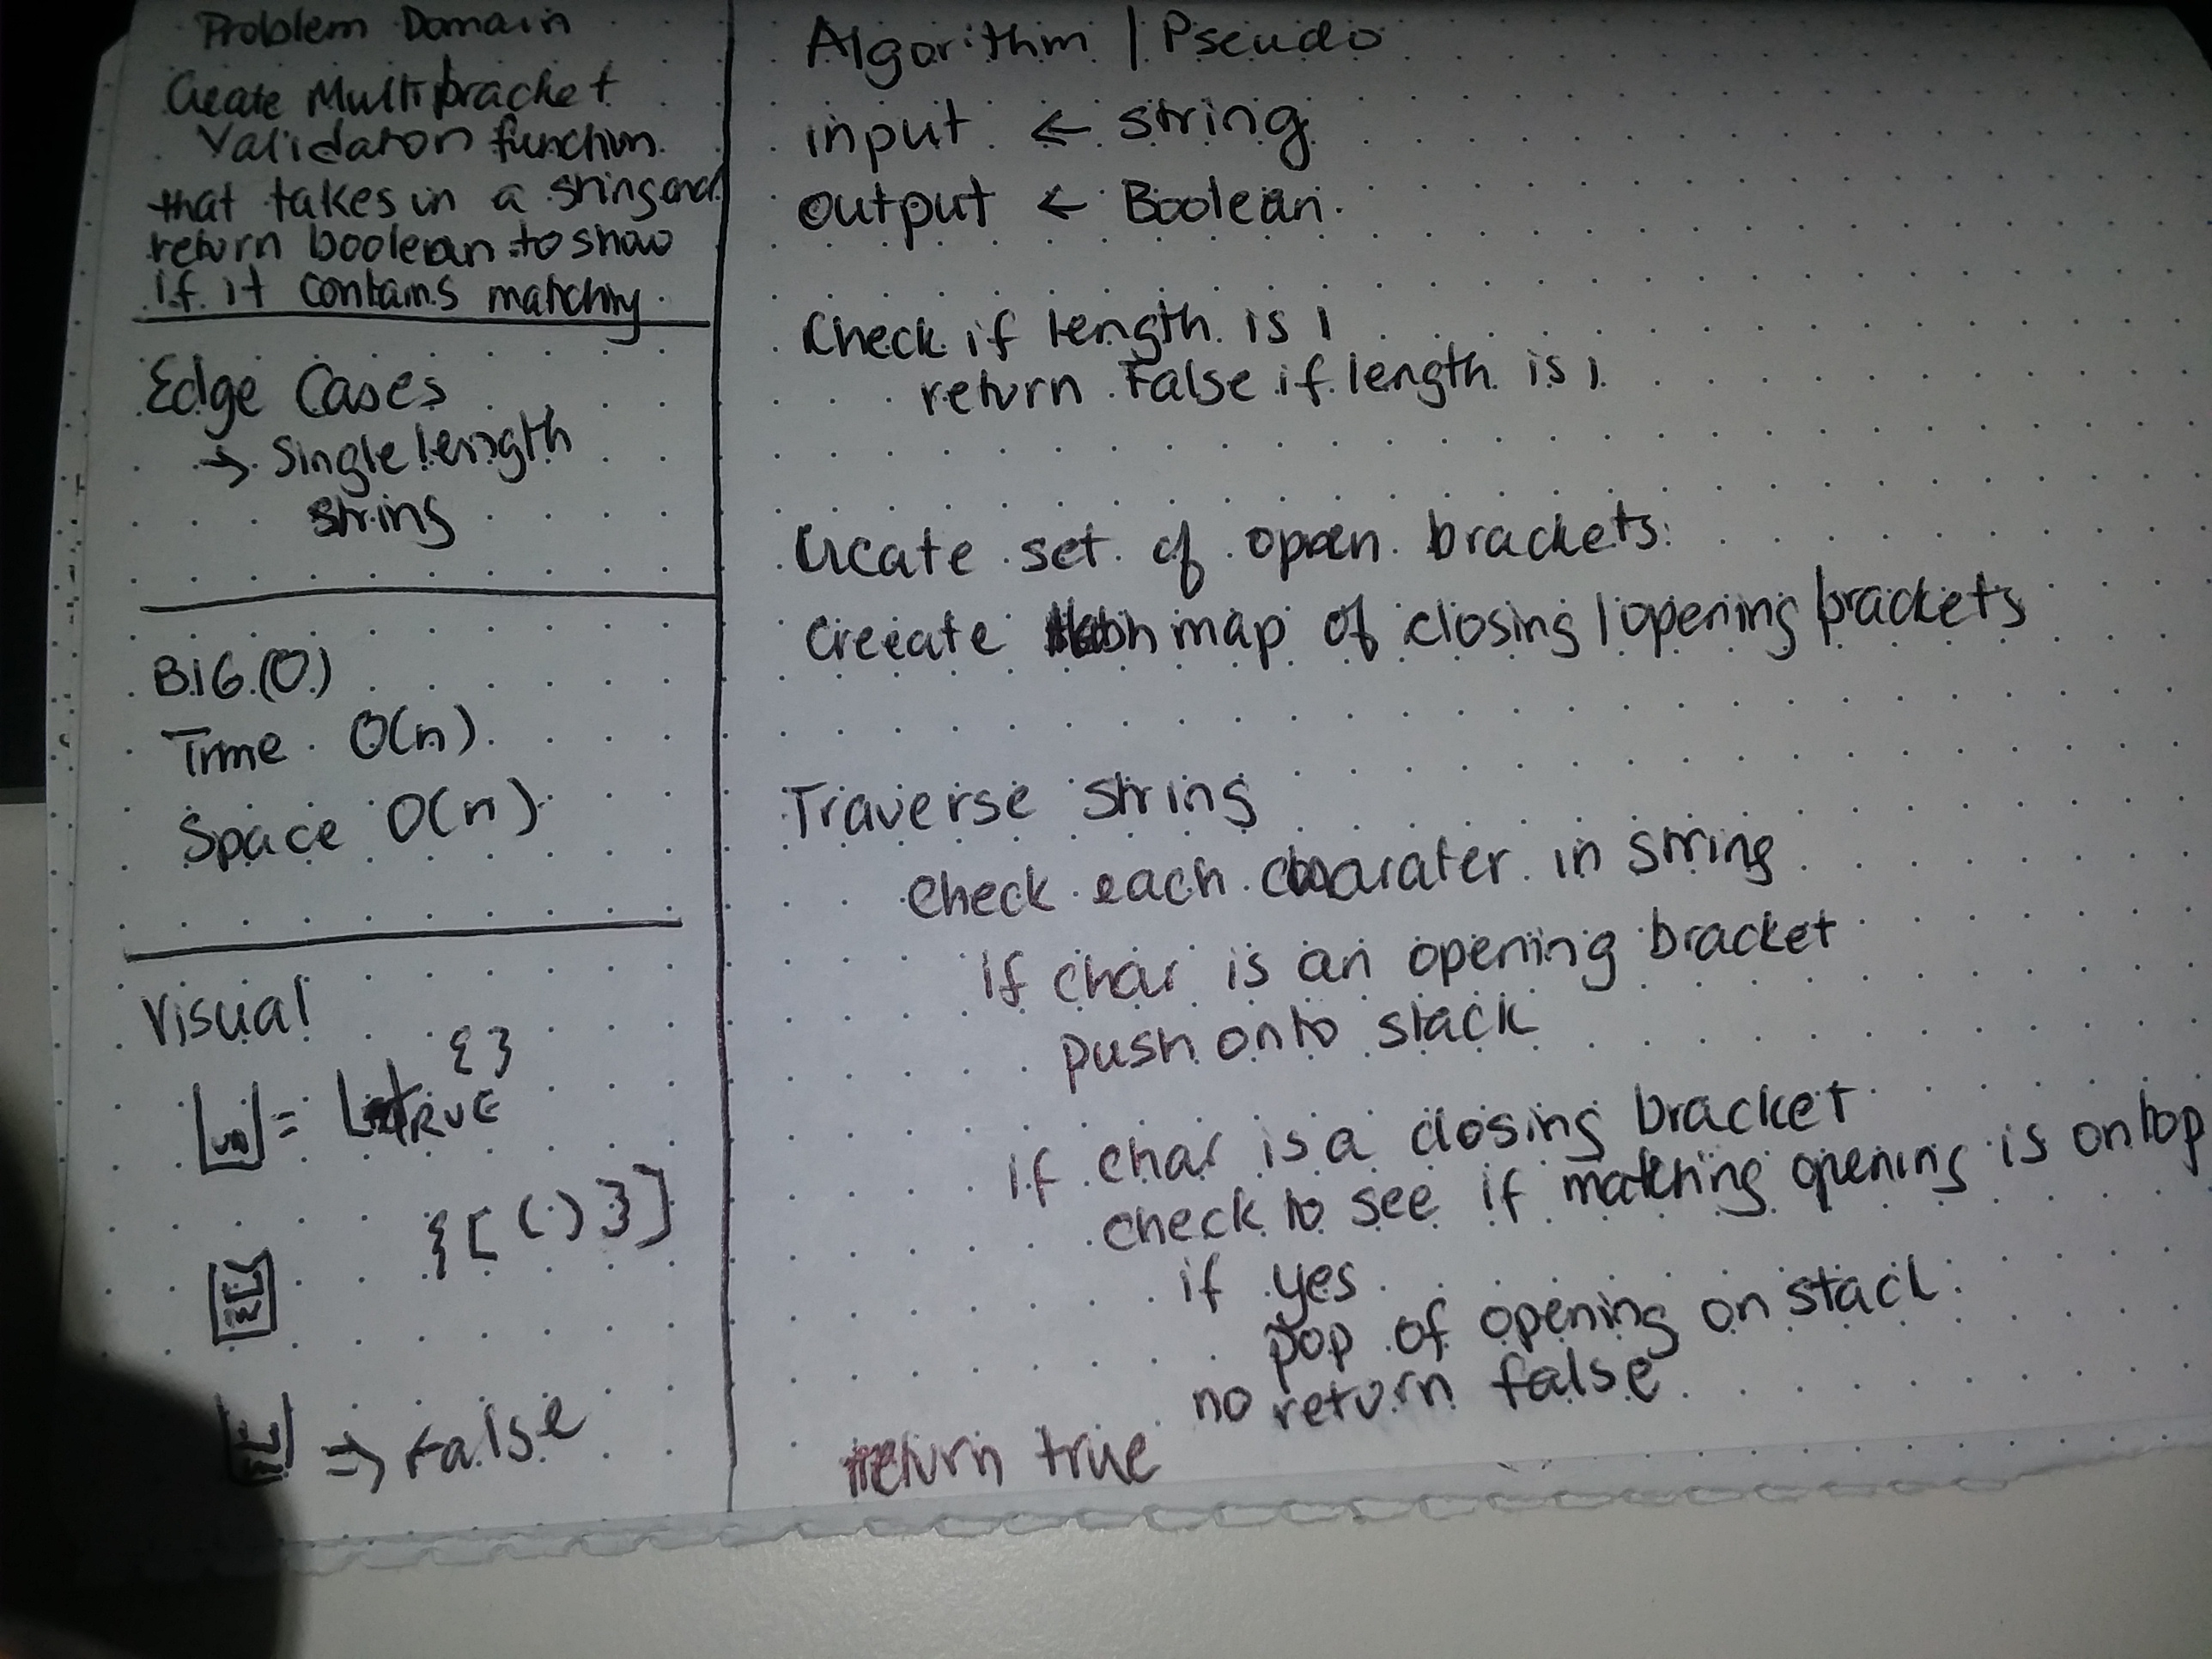 Problem Domain
Create Multibracket
Validation function
that takes in a string and
return boolean to show
if it contains matching
Edge Cases
→ Single length
string
BIG (O)
Time O(n)
Space O(n)
Visual
{ }
= TRUE
{ [ ( ) } ]
⇒ False
Algorithm | Pseudo
input ← string
output ← Boolean.
Check if length is 1
return False if length is 1
Create set of open brackets
Create Hash map of closing | opening brackets
Traverse string
check each charater in string
if char is an opening bracket
push onto stack
if char is a closing bracket
check to see if matching opening is on top
if yes
pop of opening on stack
no return false
return true